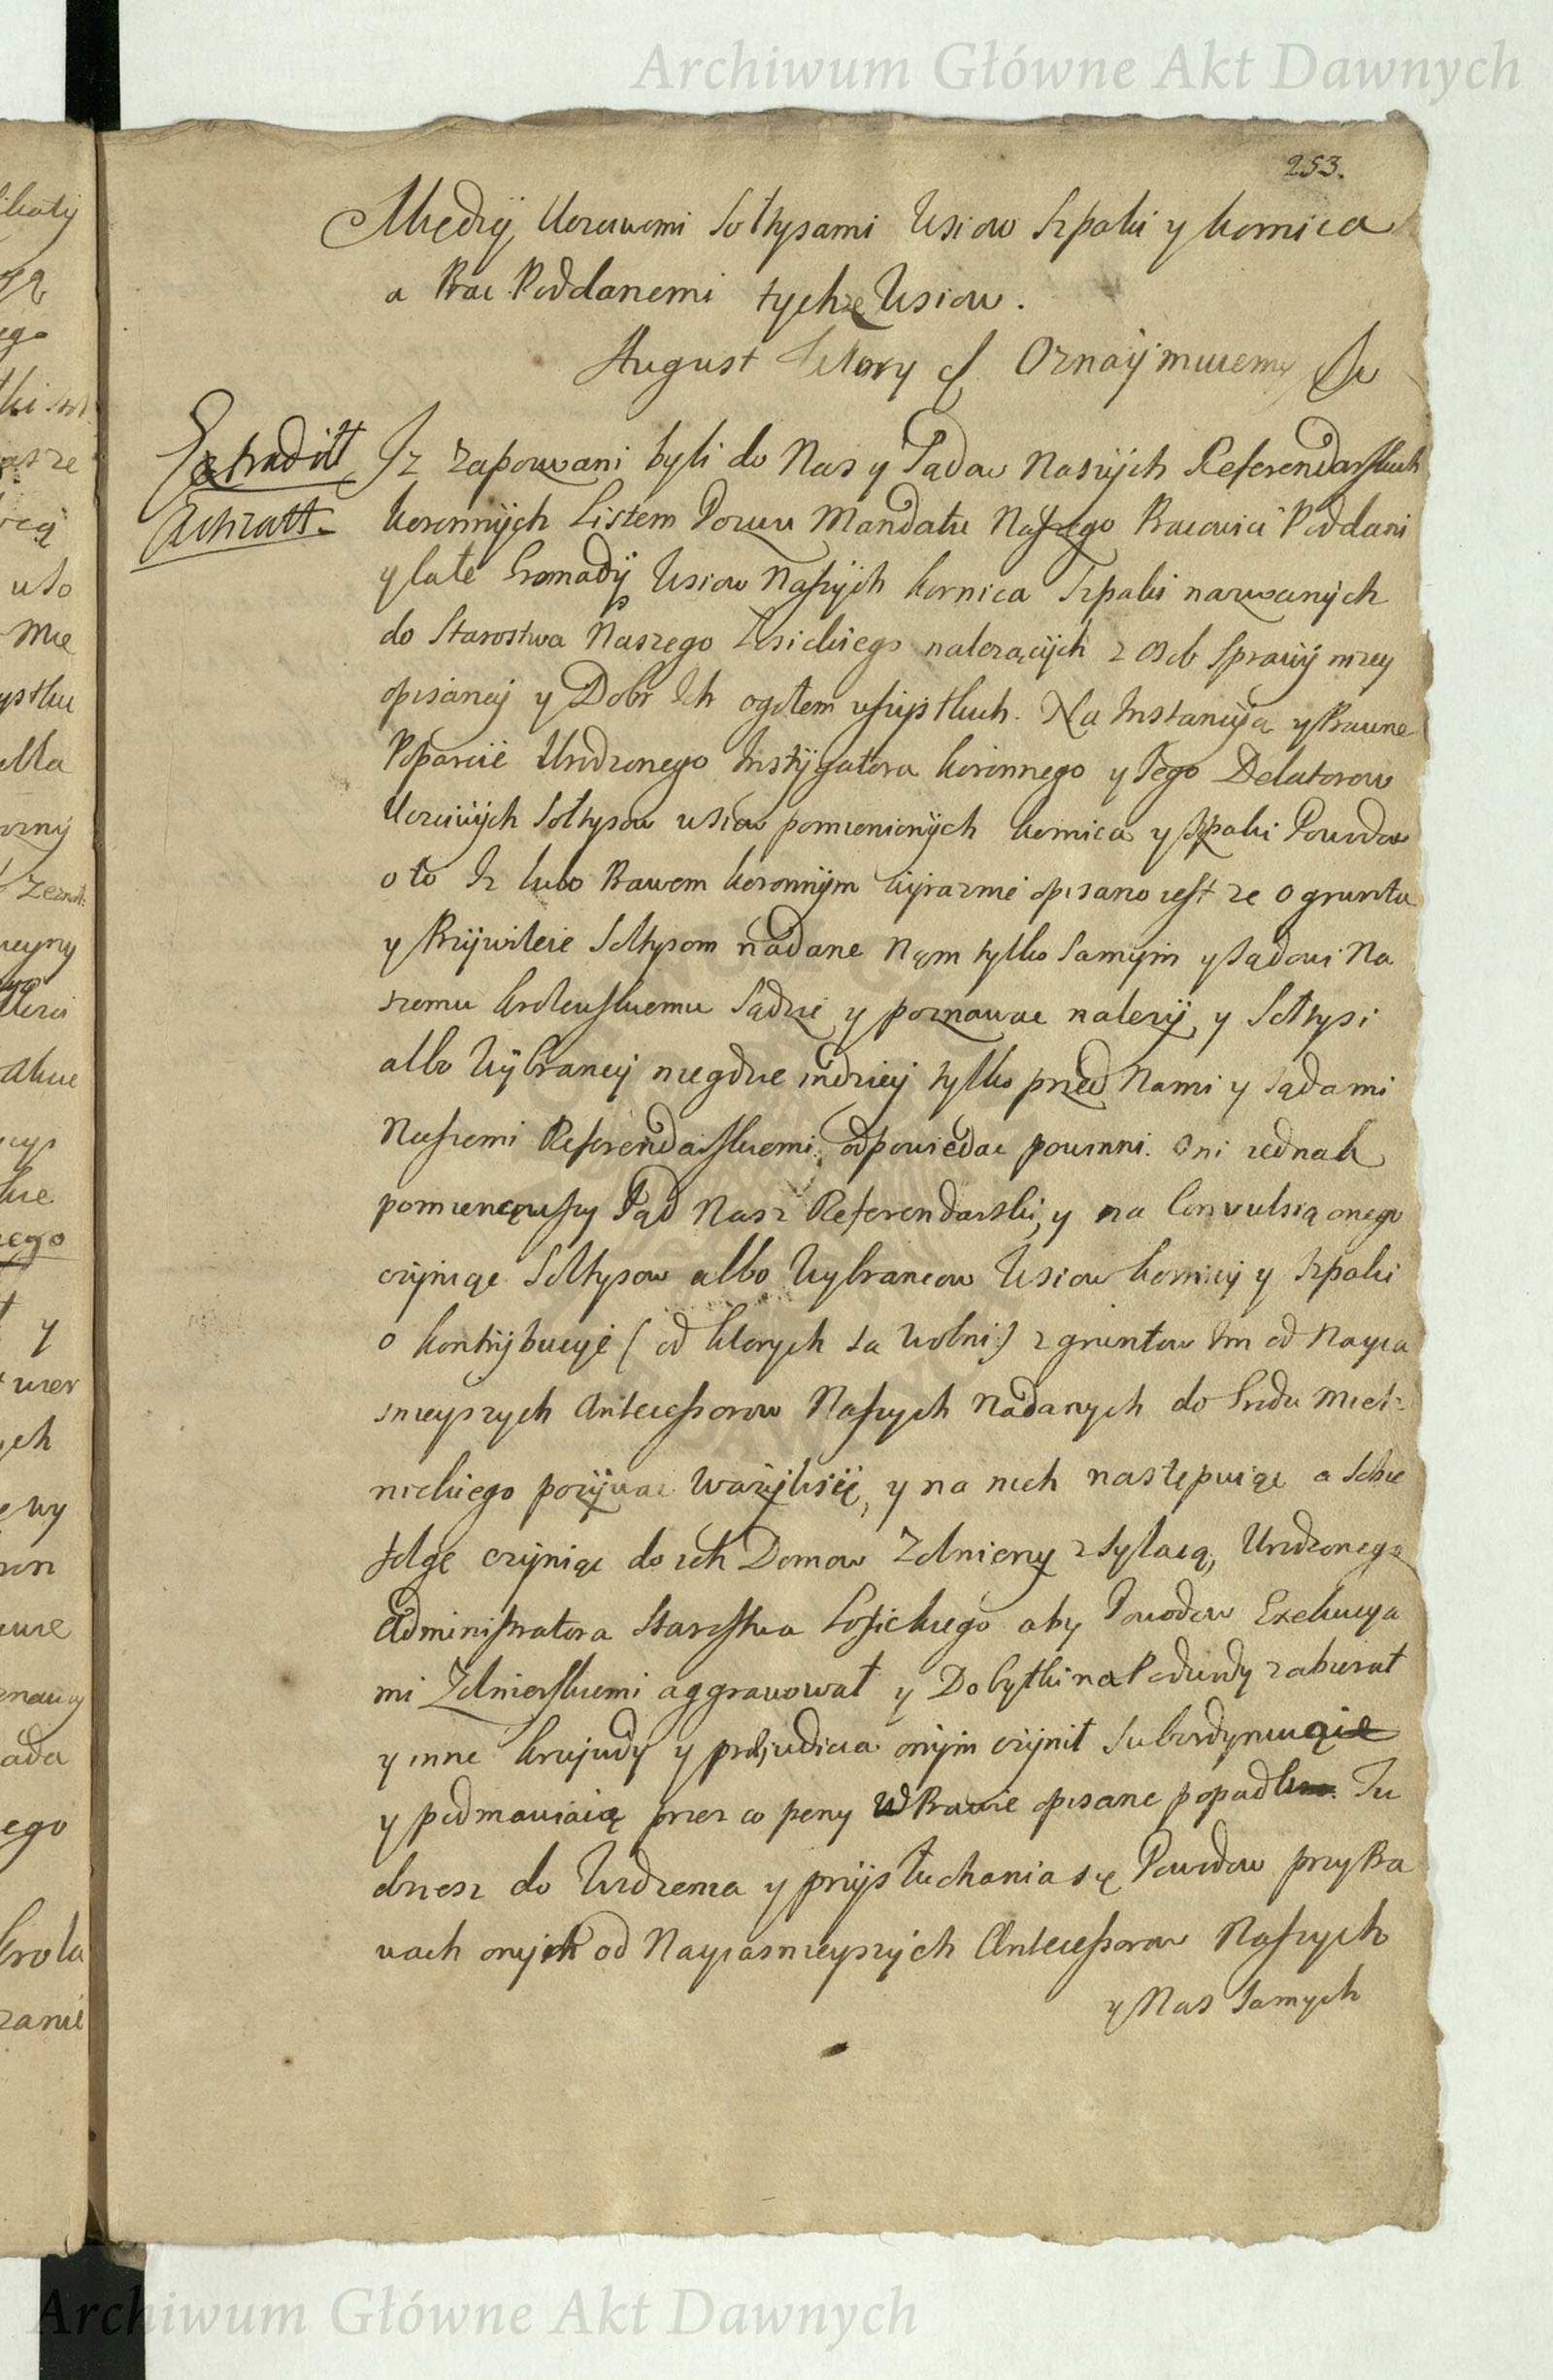 Archiwum Główne Akt Dawnych
253.
Między Uczciwemi Sołtysami Wsiow Szpaki y Kornica
a Prac. Poddanemi tychze Wsiow.
August Wtory &. Oznaÿmuiemy Iu
Extradilt
Achzatt.
Jz zapozwani byli do Nas y Sądow Naszÿch Referendarskich
koronnÿch Listem Pozwu Mandatu Naszego Pracowici Poddani
y całe Gromadÿ Wsiow Naszÿch Kornica Szpaki nazwanÿch
do Starostwa Naszego Łosickiego nalezącÿch z osob Sprawÿ nizey
opisaneÿ y Dobr Ich ogołem wszÿstkich. Na Instancÿą y Prawne
Poparcie Urodzonego Instÿgatora koronnego y Jego Delatorow
Uczciwÿch Sołtysow wsiow pomienionÿch Kornica y Szpaki Powodow
o to Iz lubo Prawem koronnÿm wÿraznie opisano iest ze o grunta
y Przÿwileie Sołtysom nadane Nąm tylko Samÿm y Sądowi Na
szemu krolewskiemu Sądzic y poznawac nalezÿ, y Sołtysi
albo Wÿbrancy niegdzie indzieÿ tylko przed Nami y Sądami
Naszemi Referendarskiemi odpowiedac powinni. Oni iednak
pomienąwszy Sąd Nasz Referendarski, y na Convulsią onego
czÿniąc Sołtysow albo Wybrancow Wsiow Kornicÿ y Szpaki
o kontrÿbucÿie (od ktorych są wolni) z gruntow Im od Nayia
snieyszych Antecessorow Naszych Nadanych do Grodu Miel-
nickiego pozÿwac wazÿli się, y na nich następuiąc a sobie
folgę czÿniąc do ich Domow Zołnierzy zsyłaią, Urodzonego
Administratora Starostwa Łosickiego aby Powodow Exekucya
mi Zołnierskiemi aggrawował y Dobytki na Podwody zabierał
y inne krzywdy y preiudicia onÿm czÿnił Subordynuiąc
y podmawiaią przez co peny w Prawie opisane popadli. Tu
dziesz do Widzenia y przÿsłuchania się Powodow przy Pra
wach onÿch od Nayiasnieyszÿch Antecessorow Naszych
y Nas Samych
Archiwum Główne Akt Dawnych